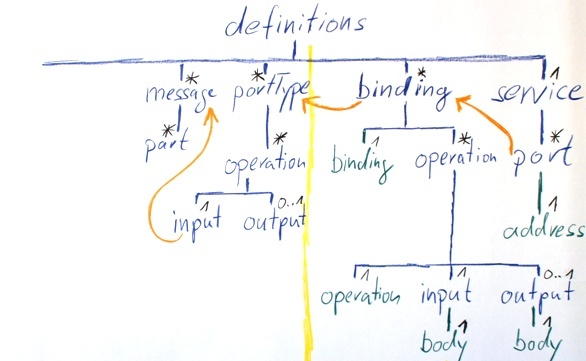 definitions
message * portType * binding * service 1
part * operation * binding 1 operation * port *
input 1 output 0..1 address 1
operation 1 input 1 output 0..1
body 1 body 1